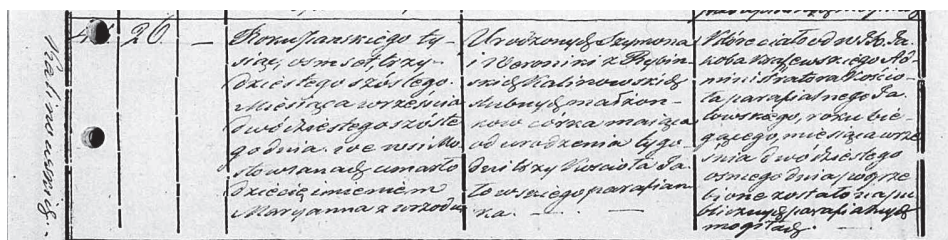 Kalinowskich.
26. —
Roku Pańskiego ty-
siąc, osmset trzy-
dziestego szóstego.
Miesiąca września
dwódziestego szóste
go dnia. we wsi Mo
stowianach umarło
dziecię imieniem
Maryanna z wrzodu
Urodzonych Szymona
i Weroniki z Rybin-
skich Kalinowskich
slubnych małżon-
ków córka maiąca
od urodzenia tygo-
dni trzy Kościoła Ja-
łowskiego parafian
ka. —
Które ciało od W. JX. Ja-
koba Krajewskiego Ad-
ministratora Kościo-
ła parafialnego Ja-
łowskiego, roku bie-
gącego, miesiąca wrze
śnia dwódziestego
osmego dnia pogrze
bione zostało na pu-
blicznych parafialnych
mogiłach.